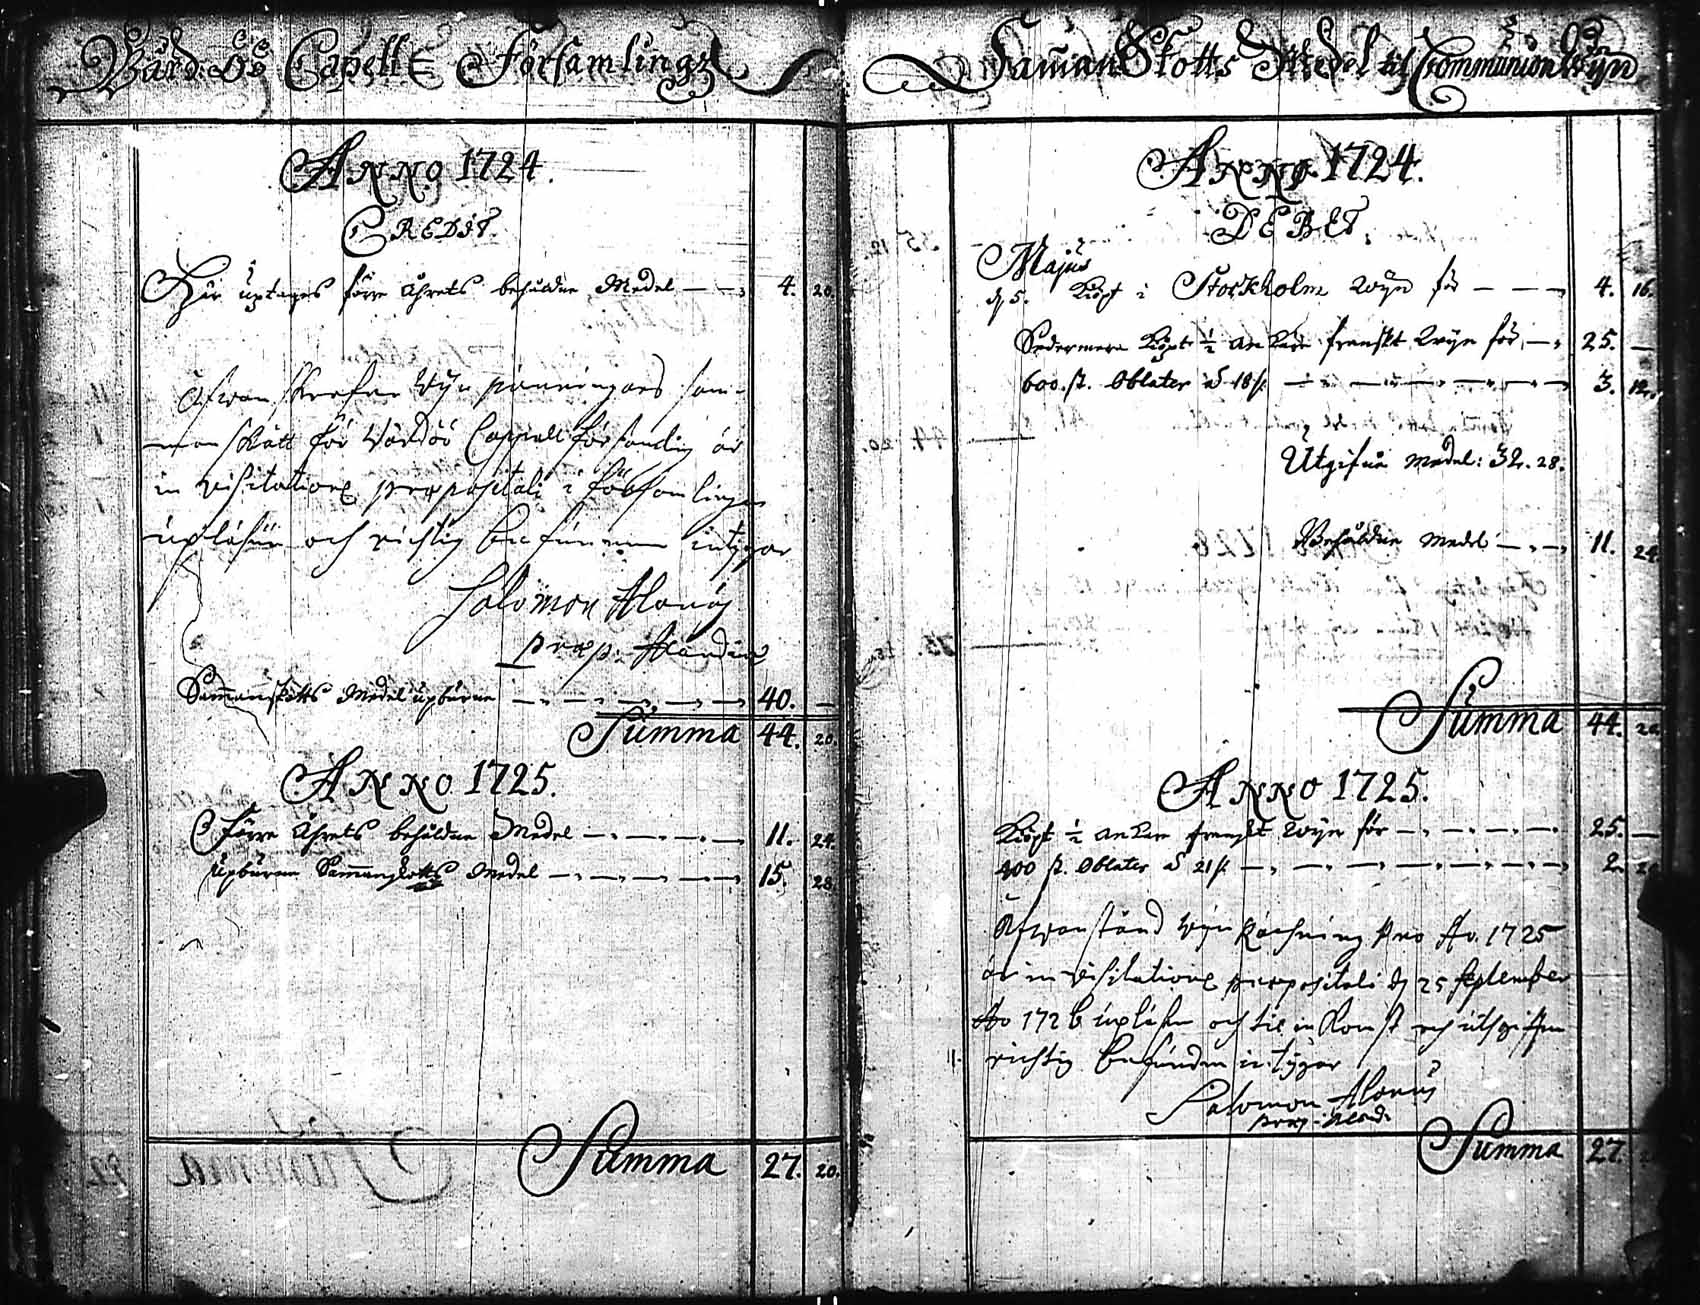 Wård-Öö Capells Församlings
ANNO 1724.
CREDIT.
Här uptages förre åhrets behåldne Medel 4. 20.
Åfwanskrefne Wijn penningars sam-
manskått för Wårdöö Cappell församling är
in visitatione præpositali i församlingen
upläsen och richtig befunnen intygar
Salomon Alanus
præp. Alandiæ
Sammanskåtts Medel upburne 40. —
Summa 44. 20.
ANNO 1725.
Förre Åhrets behåldne Medel 11. 24.
Upburne Sammanskotts Medel 15. 28.
Summa 27. 20.
Samman Skotts Medel til Communion Wijn
ANNO 1724.
DEBET.
Majus
d 5. Köpt i Stockholm Wijn för 4. 16.
Sedermera Köpt ½ ankare franskt Wijn för 25. —
600. st. Oblater à 18 3. 12.
Utgifne Medel: 32. 28.
Behåldne Medel 11. 24
Summa 44. 20
ANNO 1725.
Köpt ½ ankare franskt Wijn för 25. —
400 st. Oblater à 21 2. 20
Åfwanstånd Wijn Rächning pro Ao. 1725
är in visitatione præpositali d 25 September
Ao 1726 upläsen och til inkomst och utgifften
richtig befunden intygar
Salomon Alanus
præp. Aland.
Summa 27.